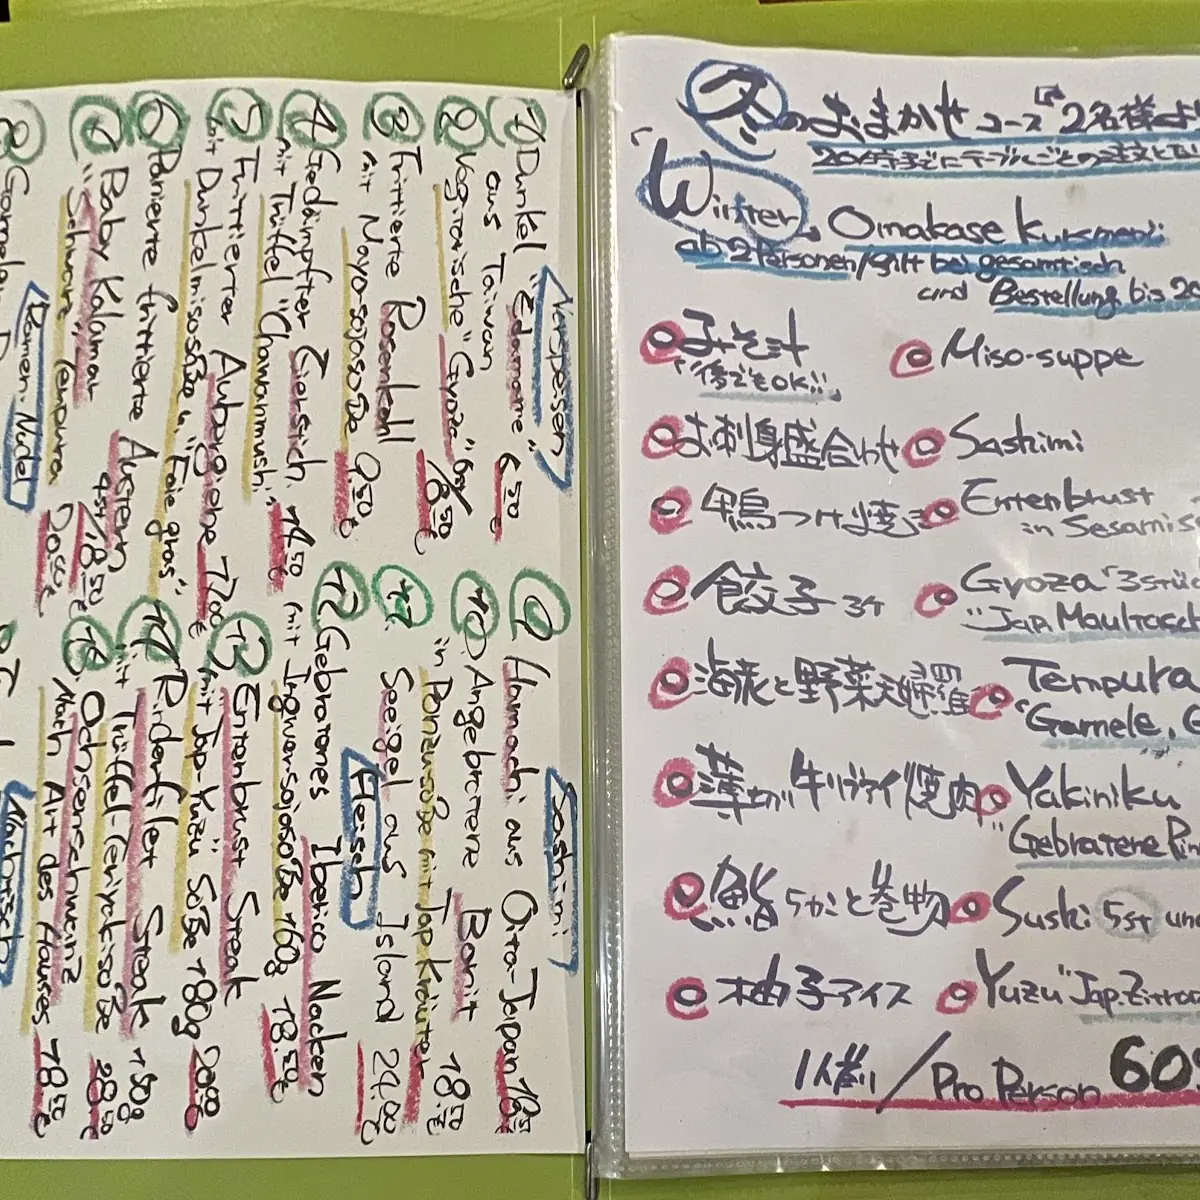 "Vorspeisen"
1 Dunkel "Edamame"
aus Taiwan 6.50 €
2 Vegetarische "Gyoza" 6st/ 8.50 €
3 Frittierte Rosenkohl
mit Mayo-sojasoße 9.50 €
4 Gedämpfter Eierstich
mit Trüffel "Chawanmushi" 14.50
5 Frittierter Aubergiene
mit Dunkelmisosoße u. "Foie gras" 17.00 €
6 Panierte frittierte Austern 4st/18.50 €
7 Baby Kalamar
"Schwarz" Tempura 20.00 €
8
"Ramen-Nudel"
"Sashimi"
9 Hamachi aus Oita-Japan
10 Angebratene Bonit
in Ponzusoße mit Jap Kräuter 18.50 €
11 Seeigel aus Island 24.00 €
"Fleisch"
12 Gebratenes Iberico Nacken
mit Ingwer-sojasoße 160g 18.50 €
13 Entenbrust Steak
mit Jap-Yuzu Soße 180g 20.00 €
14 Rinderfilet Steak 180g
mit Trüffel-Teriyaki-soße 28.50 €
15 Ochsenschwanz
Nach Art des Hauses 18.50 €
"Nachtisch"
冬のおまかせコース 2名様よ
"Winter" Omakase Kursmenü
ab 2 Personen/gilt bei gesamttisch
und Bestellung bis 20
みそ汁 Miso-suppe
後でもOK!!
お刺身盛合わせ Sashimi
鴨つけ焼き Entenbrust
in Sesamis
餃子 3ケ Gyoza "3stü
"Jap. Maultasch
海産と野菜天婦羅 Tempura
"Garnele,
薄切り牛リブアイ焼肉 Yakiniku
"Gebratene Rin
鮨5かんと巻物 Sushi 5st un
柚子アイス Yuzu "Jap. Zitron
1人前/Pro Person 60